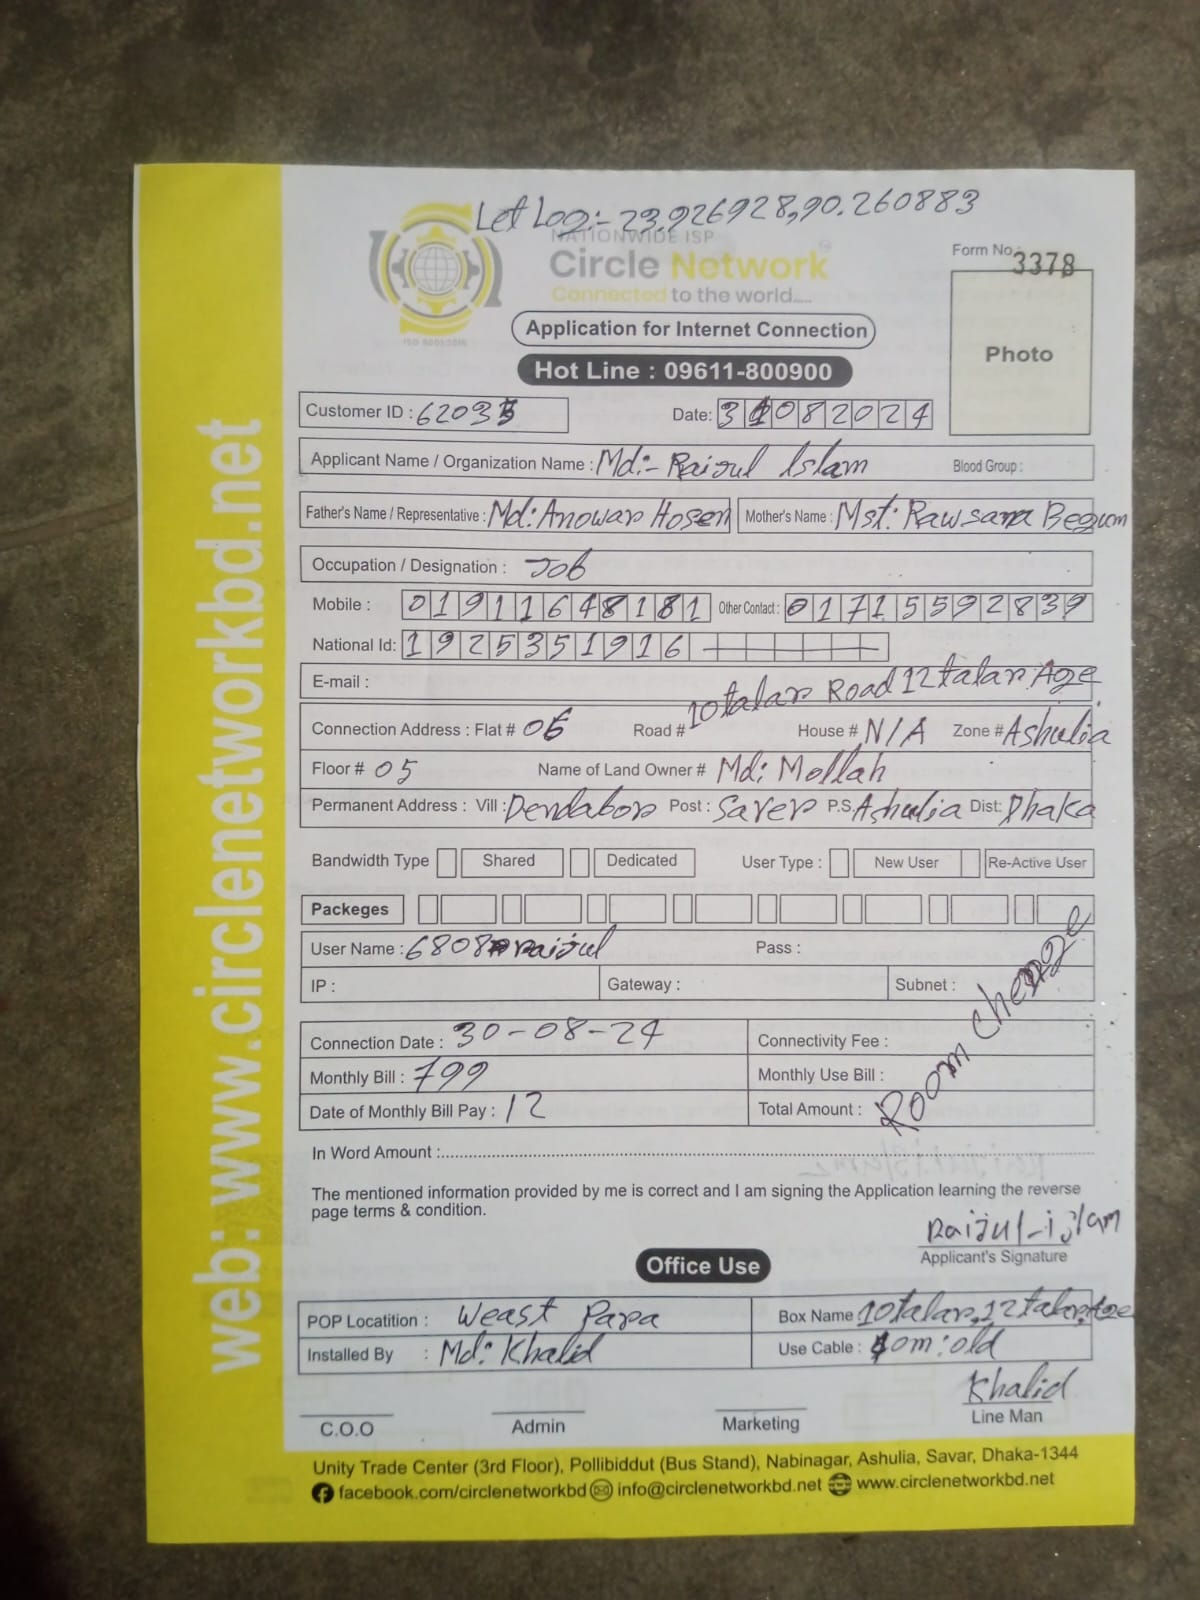 Let Log:- 23.926928,90.260883
NATIONWIDE ISP
Circle Network
Connected to the world.....
ISO 9001:2015
Form No. 3378
Photo
Application for Internet Connection
Hot Line : 09611-800900
Customer ID : 62035
Date: 31082024
Applicant Name / Organization Name : Md:- Raijul Islam Blood Group :
Father's Name / Representative : Md: Anowar Hosen Mother's Name : Mst: Rawsana Begum
Occupation / Designation : Job
Mobile : 01911648181 Other Contact : 01715592839
National Id: 1925351916
E-mail :
Connection Address : Flat # 06 Road # 10talar Road 12talar Age House # N/A Zone # Ashulia
Floor # 05 Name of Land Owner # Md: Mollah
Permanent Address : Vill : Dendabor Post : Saver P.S. Ashulia Dist: Dhaka
Bandwidth Type Shared Dedicated User Type : New User Re-Active User
Packeges
User Name : 6808 raijul Pass :
IP : Gateway : Subnet :
Room chenge
Connection Date : 30-08-24 Connectivity Fee :
Monthly Bill : 799 Monthly Use Bill :
Date of Monthly Bill Pay : 12 Total Amount :
In Word Amount :
The mentioned information provided by me is correct and I am signing the Application learning the reverse
page terms & condition.
Raijul-islam
Applicant's Signature
Office Use
POP Locatition : Weast Para Box Name 10talar,12talar,Age
Installed By : Md: Khalid Use Cable : 40m:old
Khalid
C.O.O Admin Marketing Line Man
Unity Trade Center (3rd Floor), Pollibiddut (Bus Stand), Nabinagar, Ashulia, Savar, Dhaka-1344
facebook.com/circlenetworkbd info@circlenetworkbd.net www.circlenetworkbd.net
web: www.circlenetworkbd.net